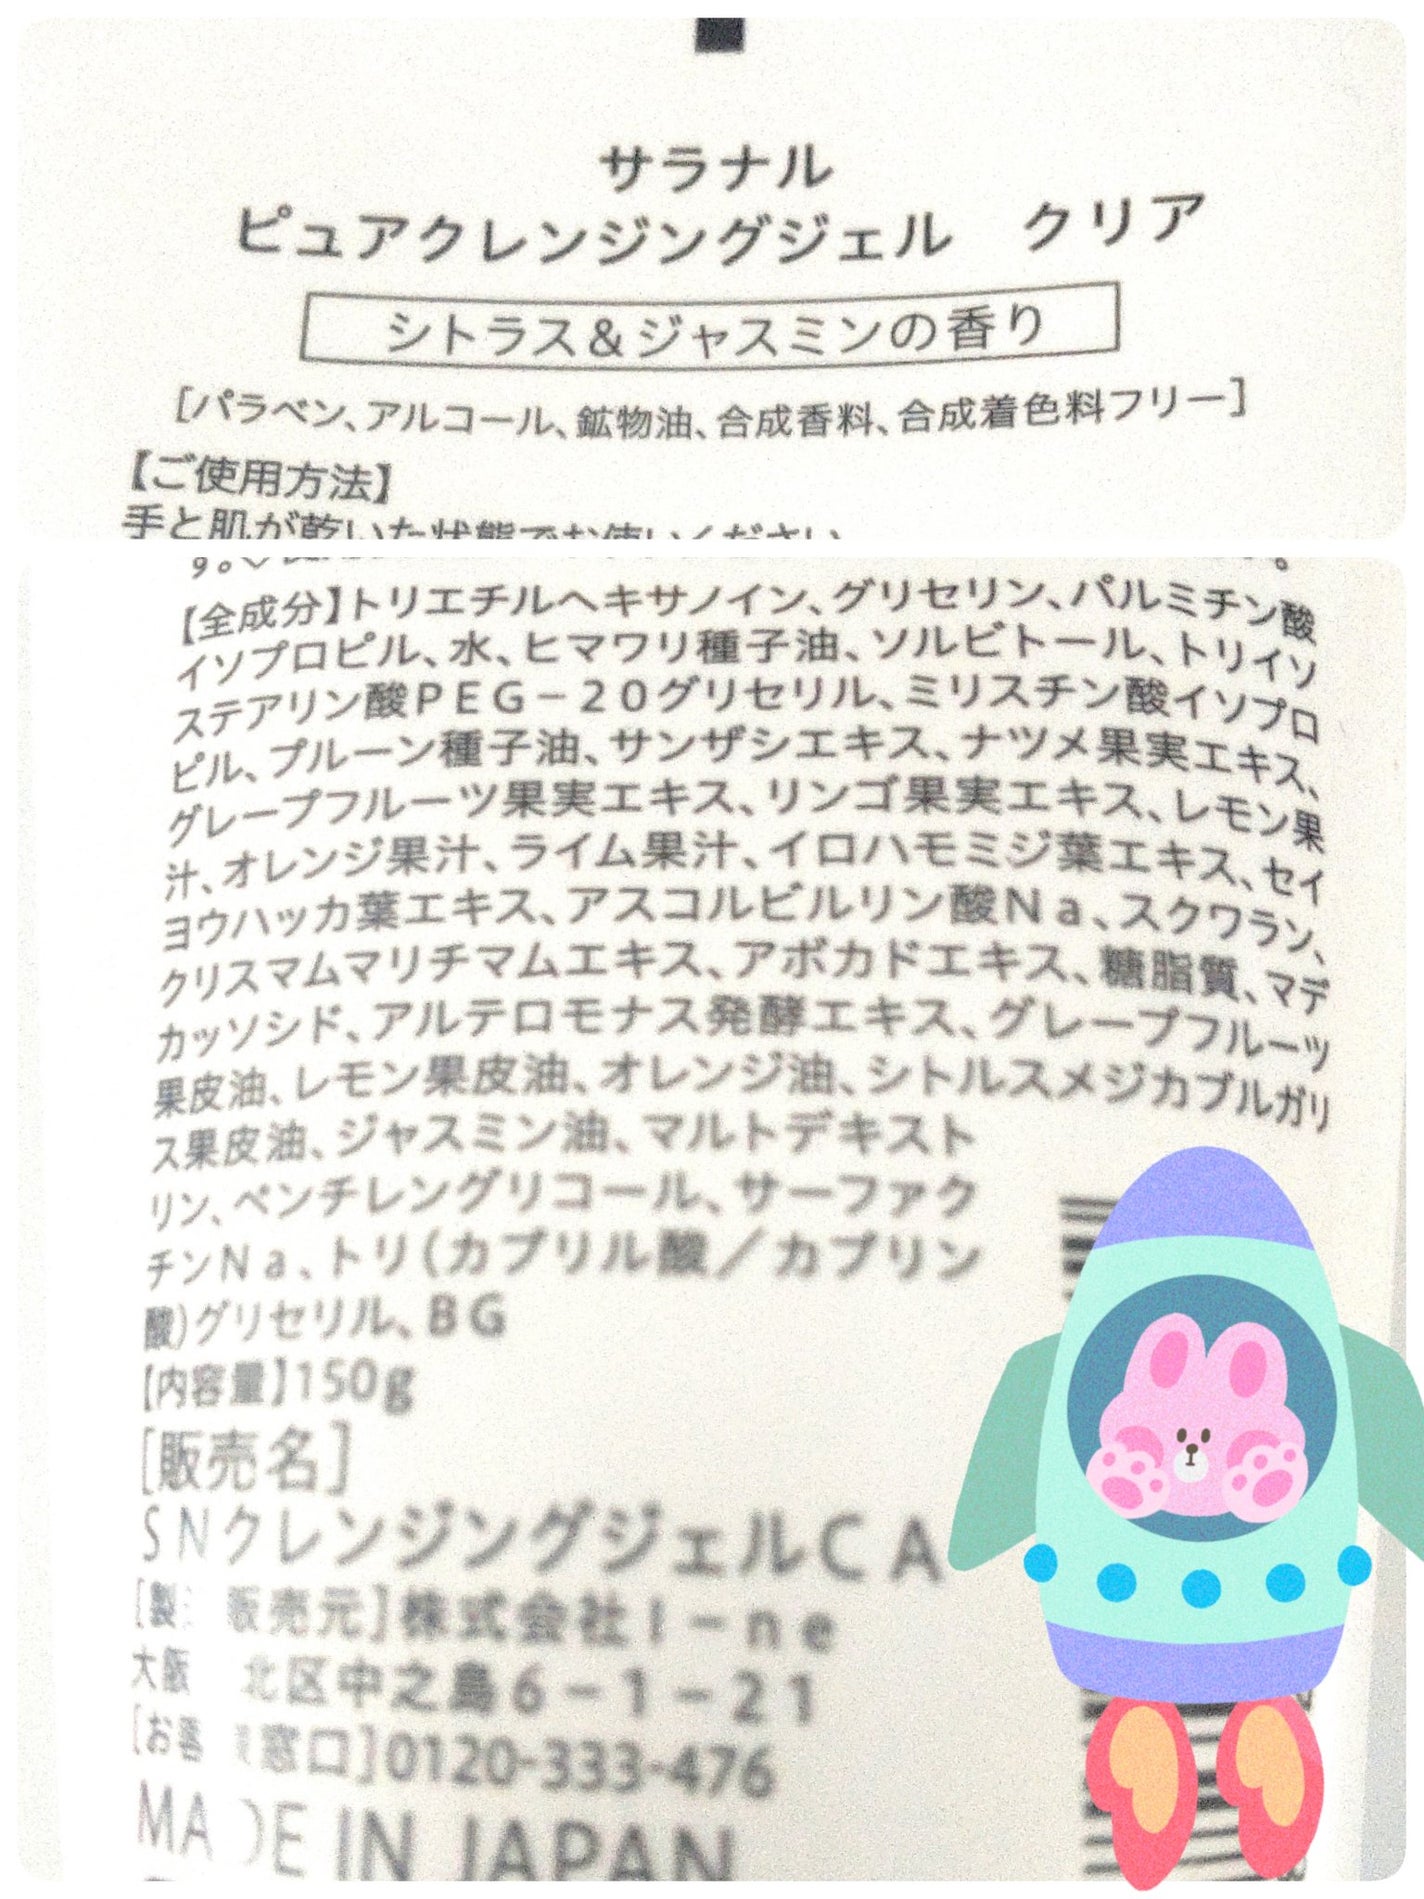 サラナル
ピュアクレンジングジェル　クリア
シトラス&ジャスミンの香り
［パラベン、アルコール、鉱物油、合成香料、合成着色料フリー］
【ご使用方法】
手と肌が乾いた状態でお使いください
す。
【全成分】トリエチルヘキサノイン、グリセリン、パルミチン酸
イソプロピル、水、ヒマワリ種子油、ソルビトール、トリイソ
ステアリン酸ＰＥＧ－２０グリセリル、ミリスチン酸イソプロ
ピル、プルーン種子油、サンザシエキス、ナツメ果実エキス、
グレープフルーツ果実エキス、リンゴ果実エキス、レモン果
汁、オレンジ果汁、ライム果汁、イロハモミジ葉エキス、セイ
ヨウハッカ葉エキス、アスコルビルリン酸Ｎａ、スクワラン、
クリスマムマリチマムエキス、アボカドエキス、糖脂質、マデ
カッソシド、アルテロモナス発酵エキス、グレープフルーツ
果皮油、レモン果皮油、オレンジ油、シトルスメジカブルガリ
ス果皮油、ジャスミン油、マルトデキスト
リン、ペンチレングリコール、サーファク
チンＮａ、トリ(カプリル酸／カプリン
酸)グリセリル、ＢＧ
【内容量】150g
［販売名］
ＳＮクレンジングジェルＣＡ
［製 販売元］株式会社Ｉ－ｎｅ
大阪 北区中之島６－１－２１
［お客 窓口］0120-333-476
MADE IN JAPAN